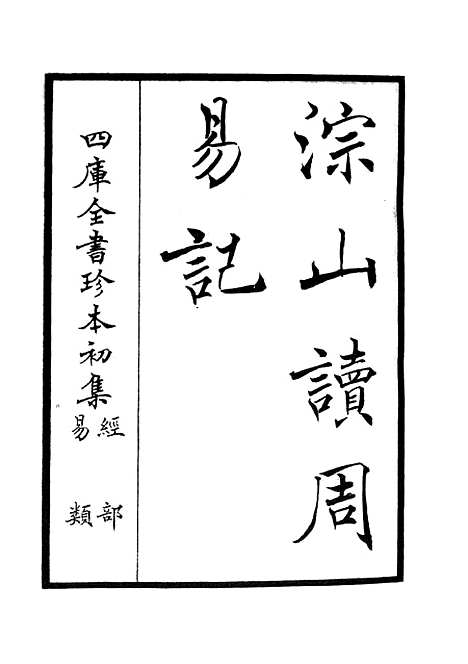 淙山讀周
易記
四庫全書珍本初集
經部
易類